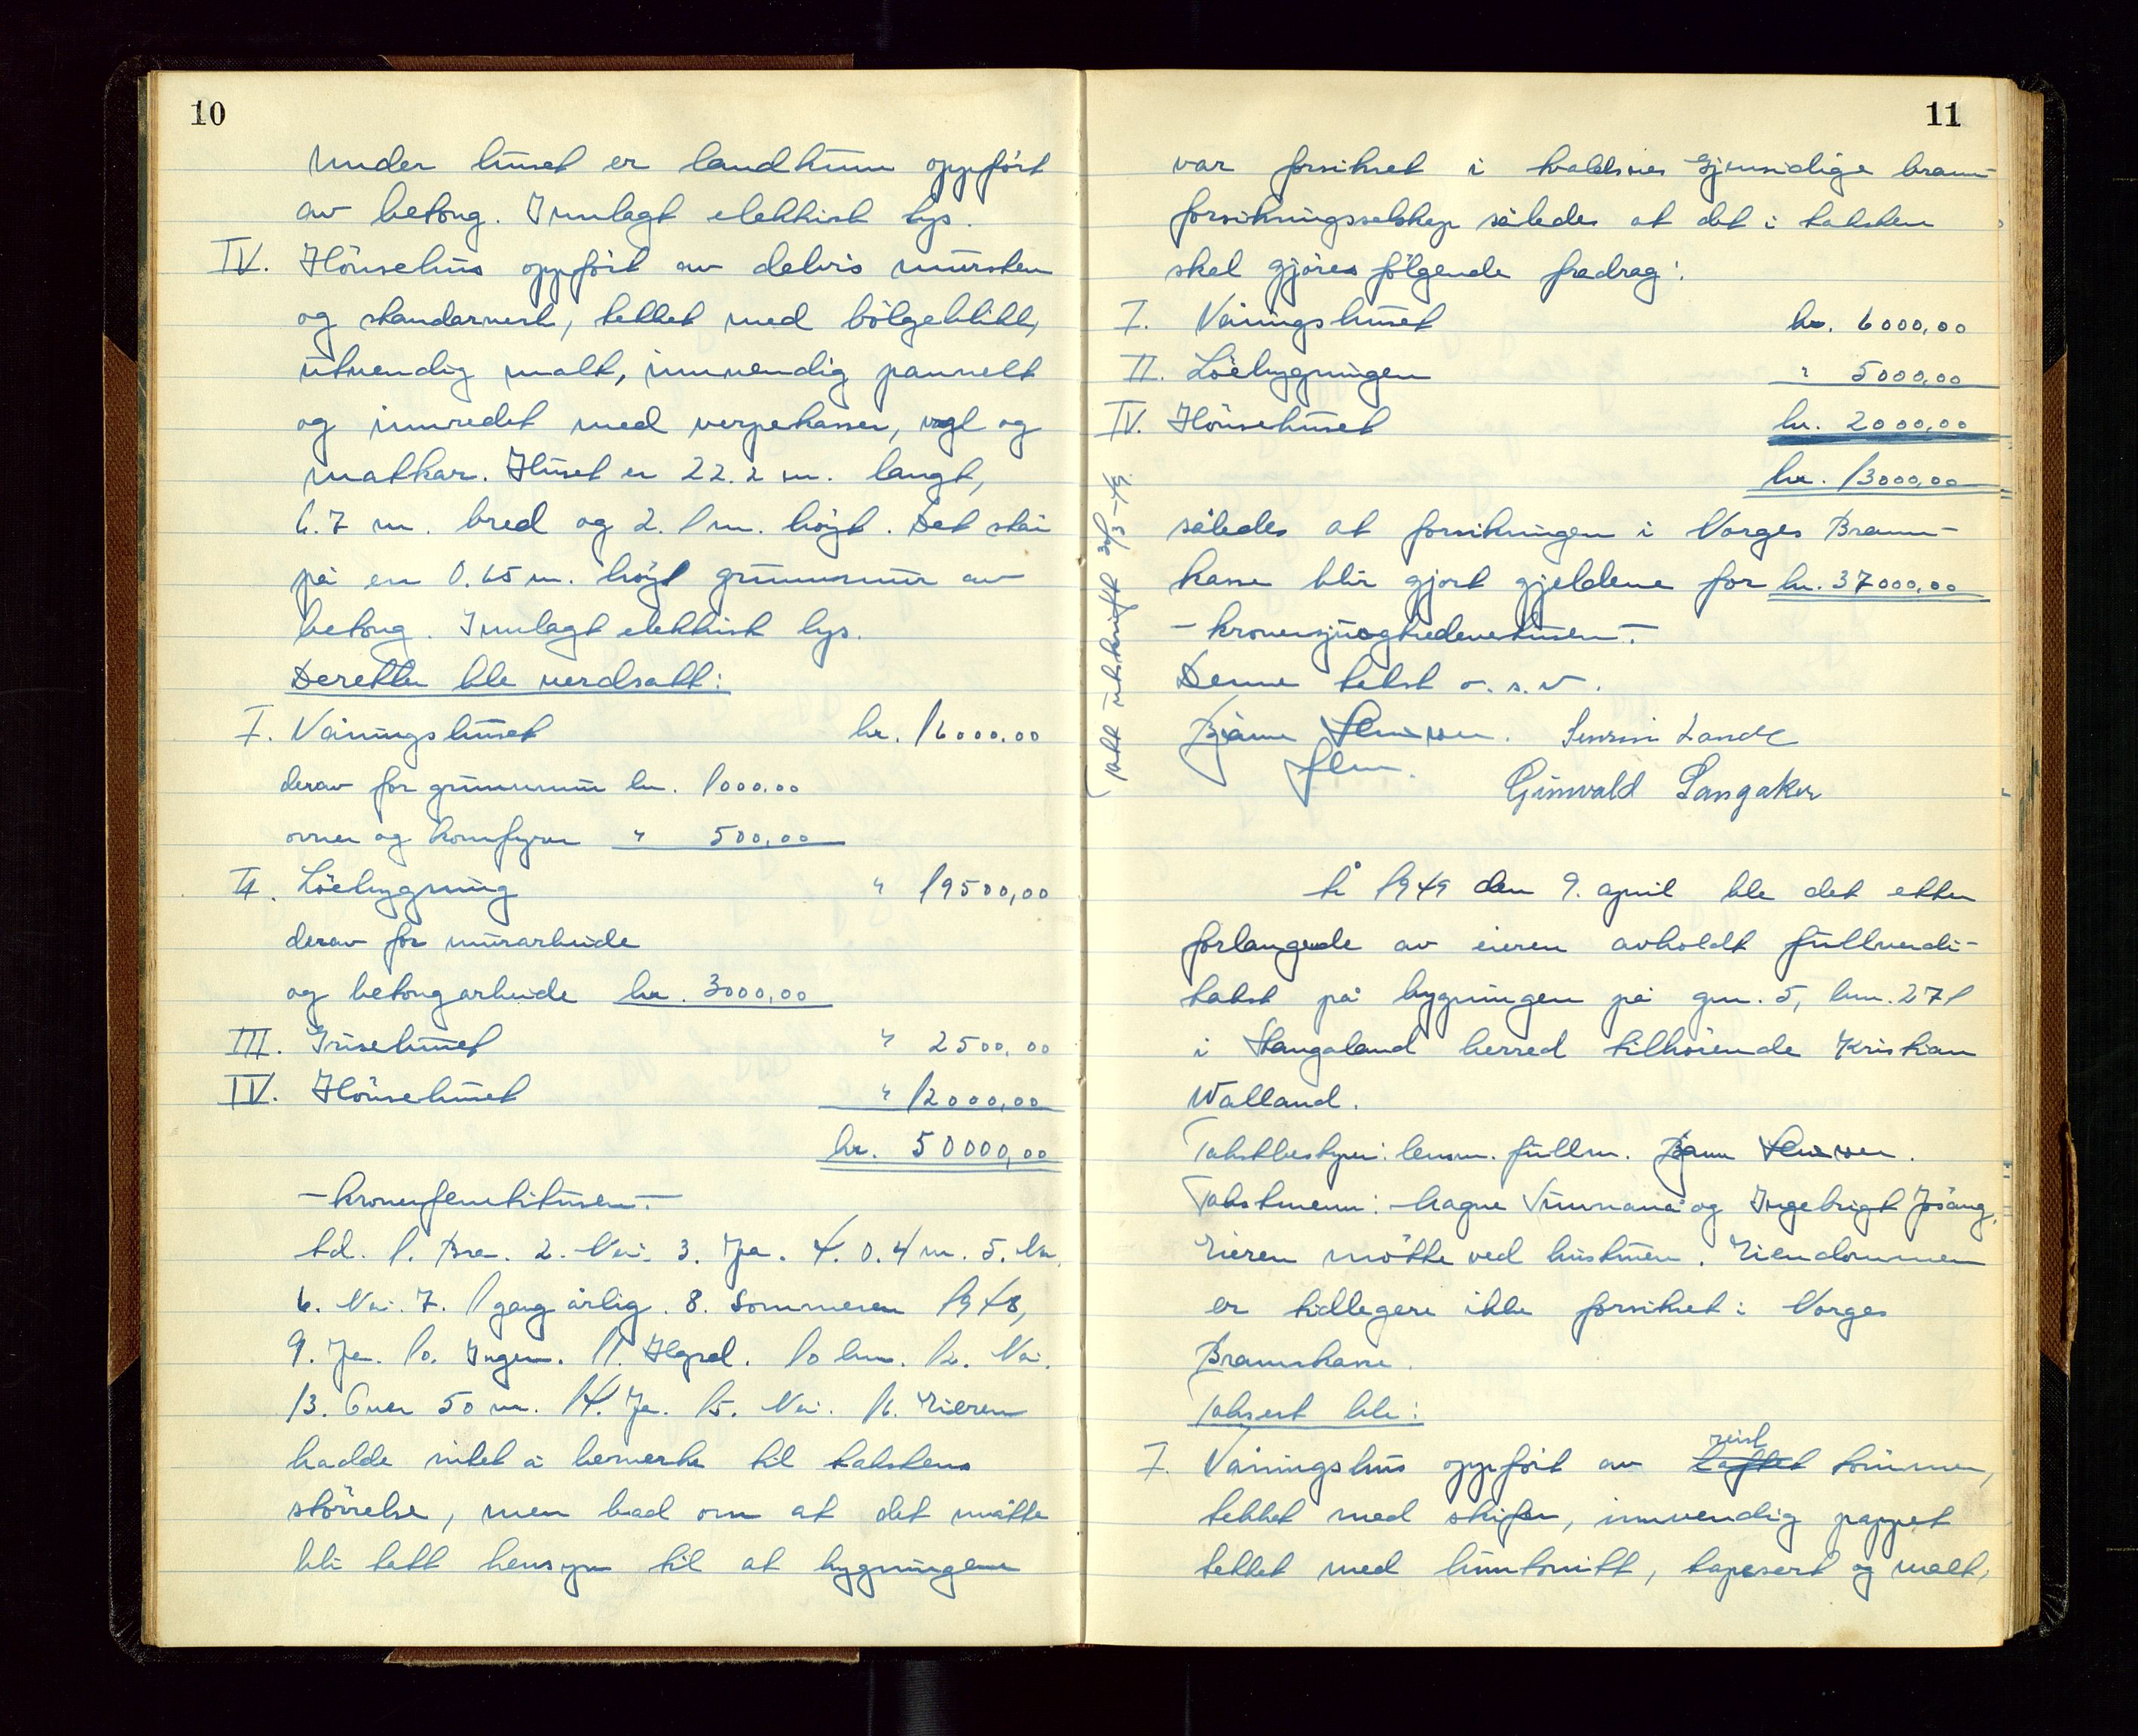 10
under huset er landkum oppført
av betong. Innlagt elektrisk lys.
IV. Hönsehus oppfört av delvis mursten
og standarverk, tekket med bölgeblikk,
utvendig malt, innvendig pannelt
og innredet med verpekasser, vagl og
matkar. Huset er 22.2 m. langt,
6.7 m. bred og 2.1 m. høyt. Det står
på en 0.65 m. høyt grunnmur av
betong. Innlagt elektrisk lys.
Deretter ble verdsatt:
I. Våningshuset kr. 16000.00
derav for grunnmur kr. 1000.00
ovner og komfyrer " 500,00
II. Löebygning " 19500,00
derav for murarbeide
og betongarbeide kr. 3000,00
III. Grisehuset " 2500,00
IV. Hönsehuset " 12000,00
kr. 50000,00
- kronerfemtitusen. -
td. 1. Bra. 2. Nei. 3. Ja. 4. 0.4 m. 5. Nei.
6. Nei. 7. 1 gang årlig. 8. Sommeren 1948,
9. Ja. 10. Ingen. 11. Hgsd. 10 km. 12. Nei.
13. Over 50 m. 14. Ja. 15. Nei. 16. Eieren
hadde intet å bemerke til takstens
störrelse, men bad om at det måtte
bli tatt hensyn til at bygningene
11
var forsikret i Avaldsnes Gjensidige brann-
forsikringsselskap således at det i taksten
skal gjöres fölgende fradrag:
I. Våningshuset kr. 6000,00
II. Löebygningen " 5000,00
IV. Hönsehuset kr. 2000,00
kr. 13000,00
således at forsikringen i Norges Brann-
kasse blir gjort gjeldene for kr. 37000,00
- kronersjuogtredevetusen. -
Denne takst o.s.v.
Bjarne Sévrin Lande
flm.
Gunvald Langaker
Tatt utskrift 30/3 -49.
År 1949 den 9. april ble det etter
forlangede av eieren avholdt fullverdi-
takst på bygningen på gnr. 5, bnr. 271
i Skangaland herred tilhörende Kristian
Walland.
Takstbestyrer: lensm. fullm. Bjarne
Takstmenn: Hagne Vinnanå og Ingebrigt Jösang.
Eieren mötte ved hustruen. Eiendommen
er tidlegere ikke forsikret i Norges
Brannkasse.
Taksert ble:
I. Våningshus oppfört av laftet reist tömmer,
tekket med skifer, innvendig pappet
tekket med huntonitt, tapesert og malt,